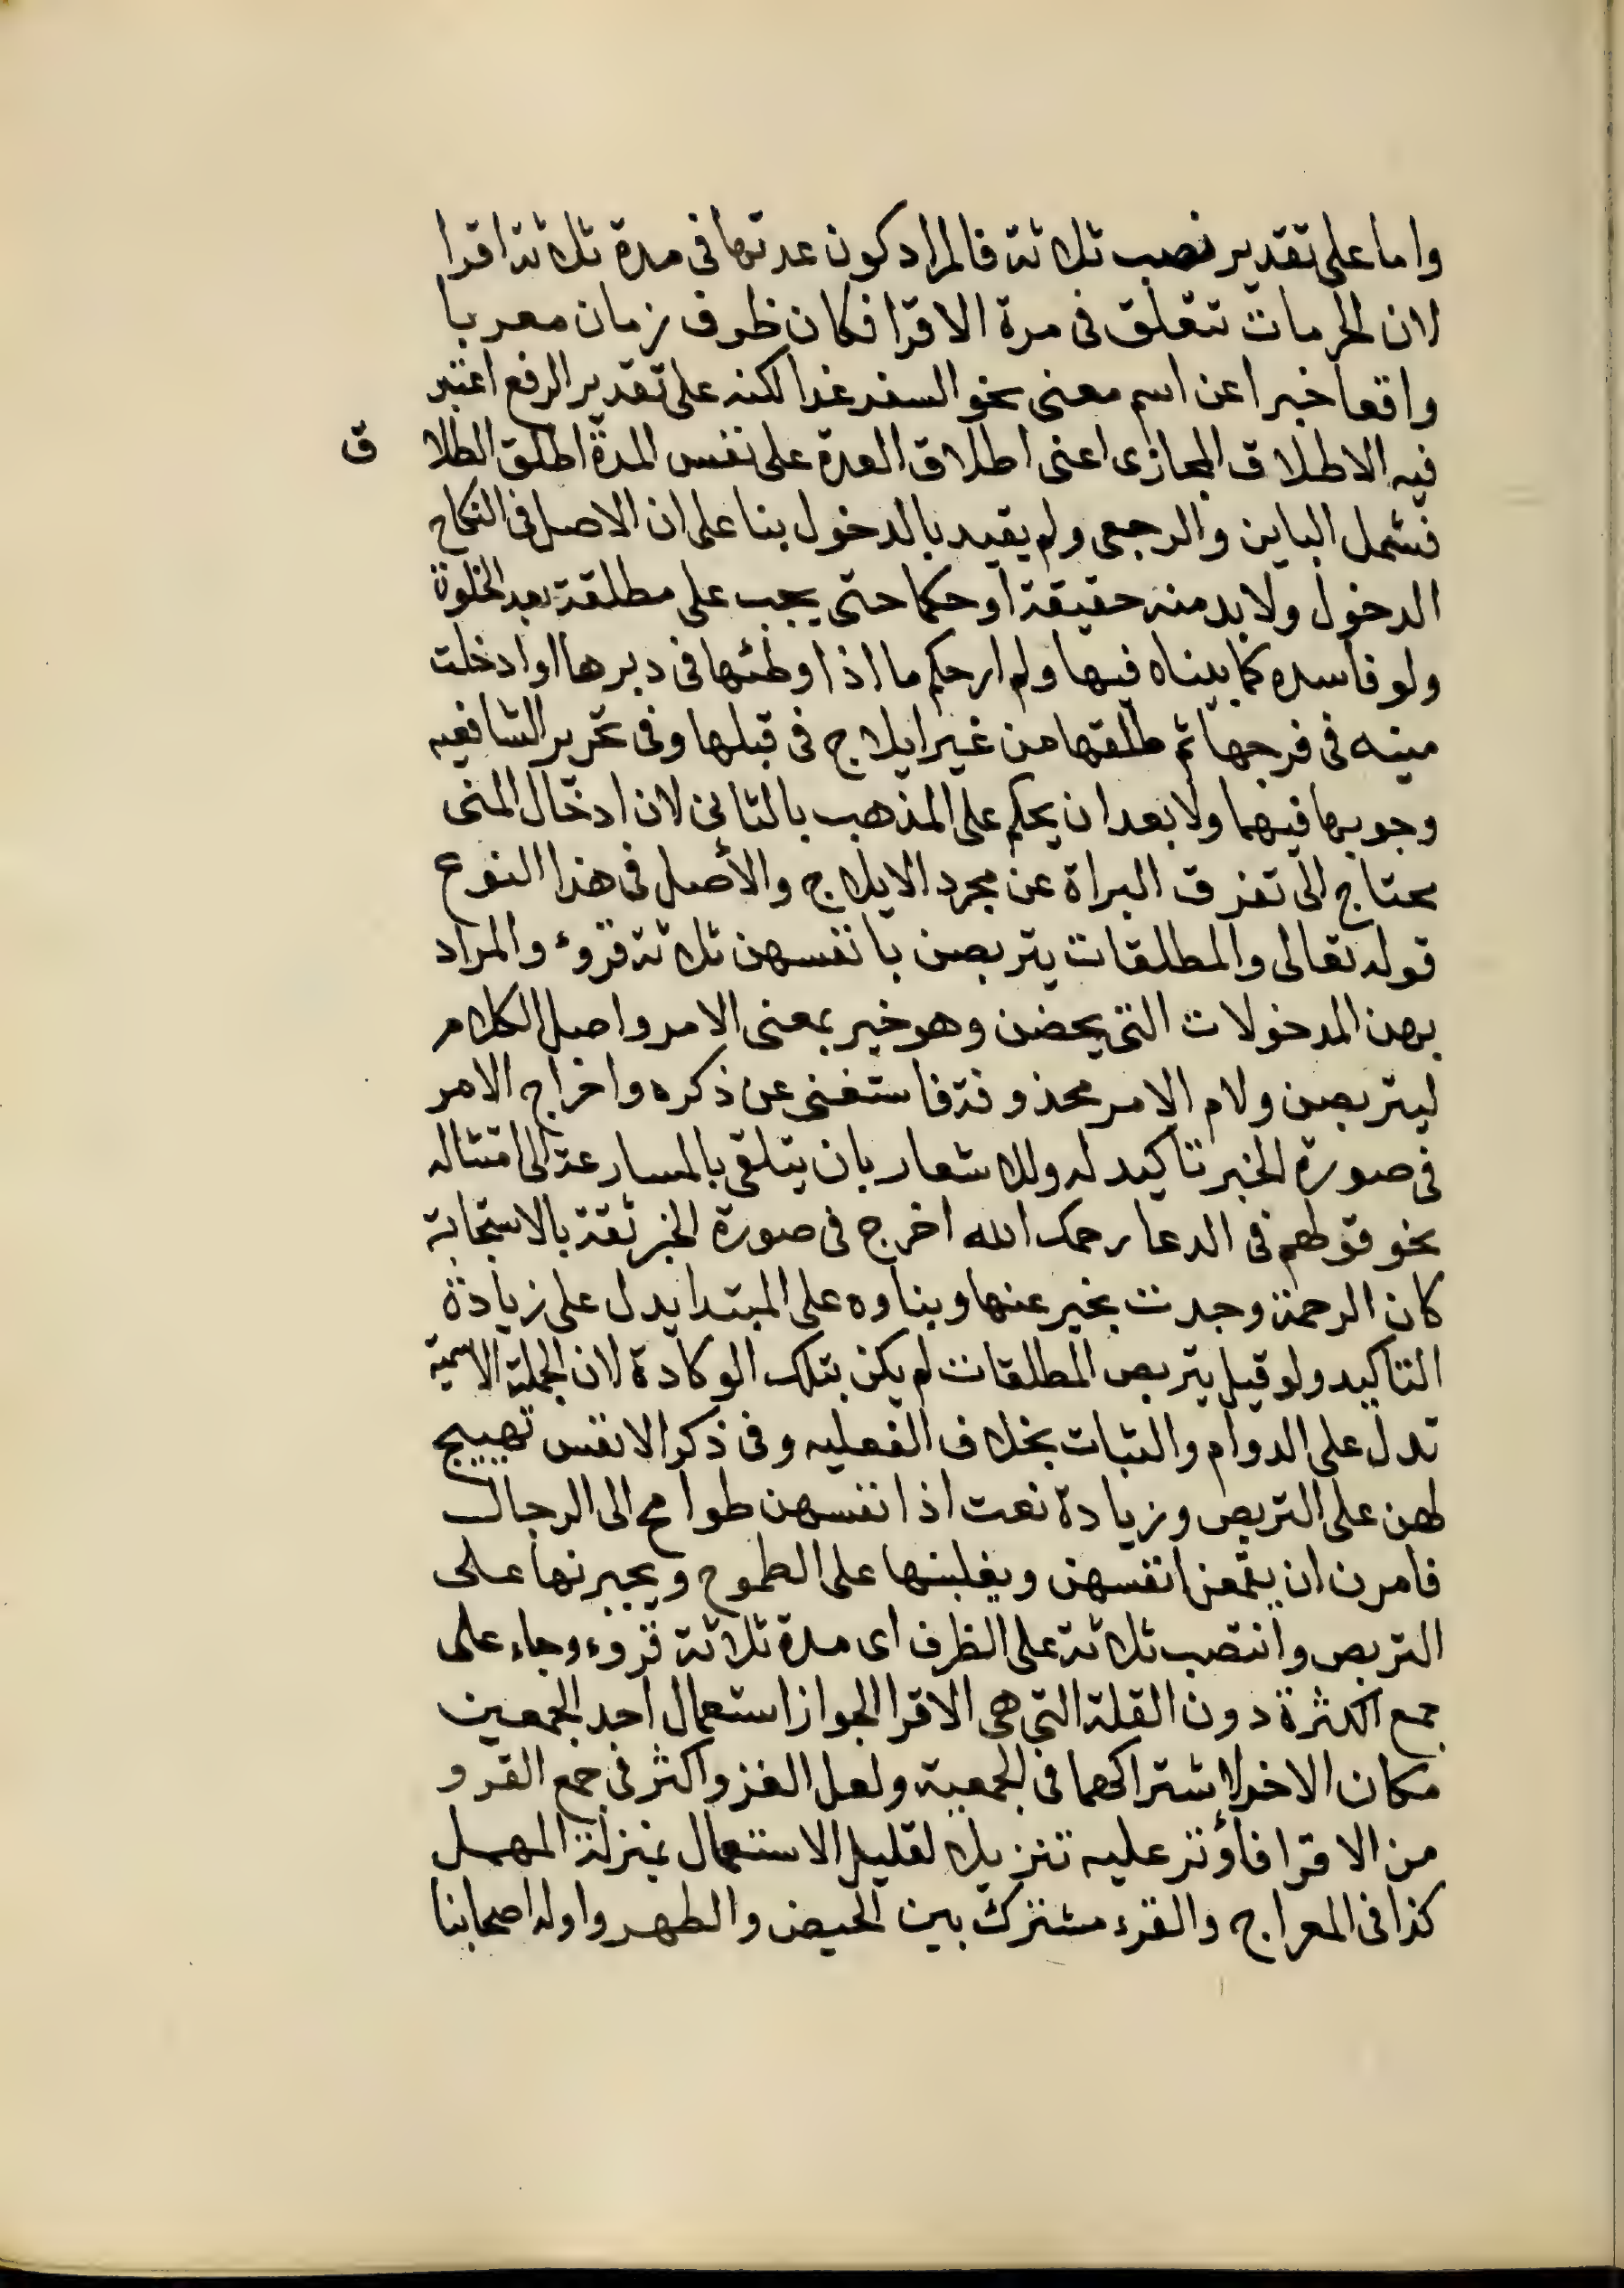 واما على تقدير نصب ثلاثة فالمراد كون عدتها في مدة ثلاثة اقرا
لان الحرمات تتعلق في مدة الاقرا فكان ظرف زمان معربا
واقعا خبرا عن اسم معنى نحو السفر غدا لكنه على تقدير الرفع اعتبر
فيه الاطلاق المجازى اعنى اطلاق العدة على نفس المدة اطلق الطلاق
فشمل الباين والرجعى ولم يقيد بالدخول بنا على ان الاصل فى النكاح
الدخول ولا بد منه حقيقة او حكما حتى يجب على مطلقة بعد الخلوة
ولو فاسده كما بيناه فيها ولم ار حكم ما اذا وطئها فى دبرها او ادخلت
منيه فى فرجها ثم طلقها من غير ايلاج فى قبلها وفى تحرير الشافعيه
وجوبها فيهما ولا بعد ان يحكم على المذهب بالثانى لان ادخال المنى
يحتاج الى تعرف البراة عن مجرد الايلاج والأصل فى هذا النوع
قوله تعالى والمطلقات يتربصن بانفسهن ثلاثة قروء والمراد
بهن المدخولات التى يحضن وهو خبر بمعنى الامر واصل الكلام
ليتربصن ولام الامر محذوفة فاستغنى عن ذكره واخراج الامر
فى صورة الخبر تاكيد له وللاشعار بان يتلقى بالمسارعة الى امتثاله
نحو قولهم فى الدعا رحمك الله اخرج فى صورة الخبر ثقة بالاستجابة
كان الرحمة وجدت يخبر عنها وبناوه على المبتدا يدل على زيادة
التاكيد ولو قيل يتربص المطلقات لم يكن بتلك الوكادة لان الجملة الاسمية
تدل على الدوام والثبات بخلاف الفعليه وفى ذكر الانفس تهييج
لهن على التربص وزيادة نعت اذ انفسهن طوامح الى الرجال
فامرن ان يقمعن انفسهن ويغلبنها على الطموح ويجبرنها على
التربص وانتصب ثلاثة على الظرف اى مدة ثلاثة قروء وجاء على
جمع الكثرة دون القلة التى هى الاقرا لجواز استعمال احد الجمعين
مكان الاخر لاشتراكهما فى الجمعية ولعل القرو اكثر فى جمع القرو
من الاقرا فأوثر عليه تنزيلا لقليل الاستعمال بمنزلة المهمل
كذا فى المعراج والقرء مشترك بين الحيض والطهر واوله اصحابنا